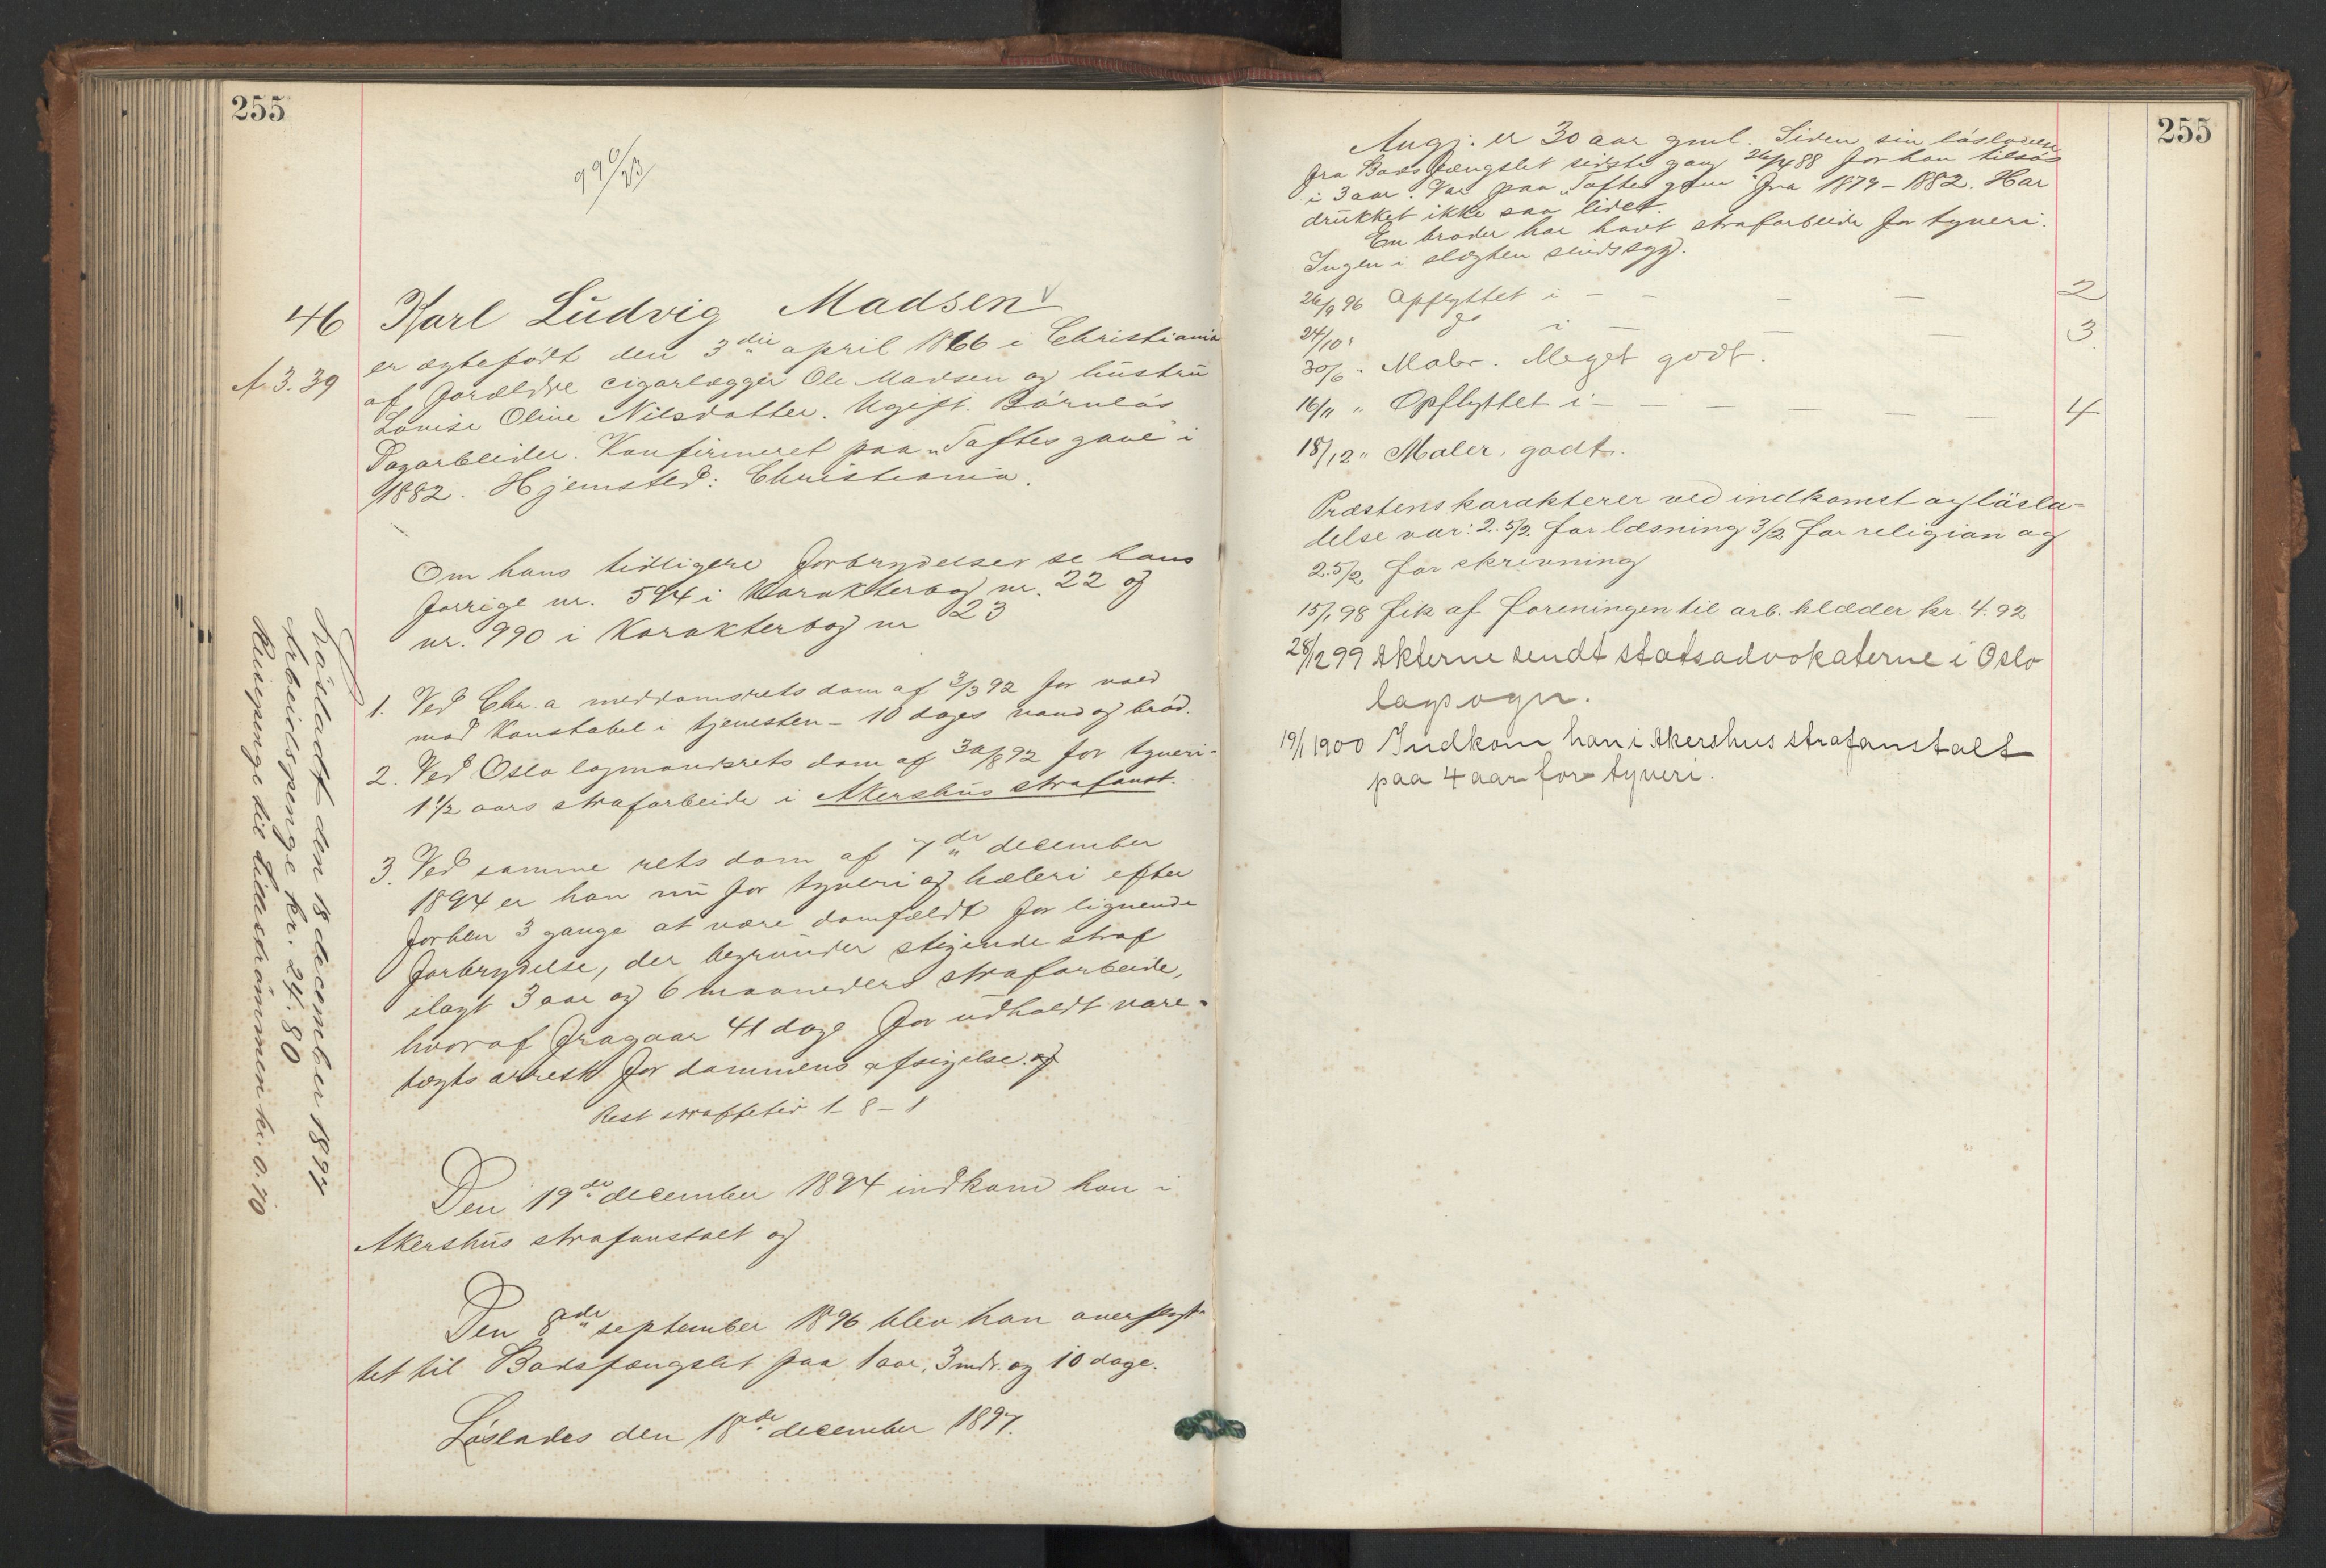 255
990/23
46 Karl Ludvig Madsen
er ægtefödt den 3die april 1866 i Christiania
A. 3. 39
af forældre cigarlægger Ole Madsen og hustru
Lovise Oline Nilsdatter. Ugift. Barnlös
Dagarbeider. Konfirmeret paa "Toftes gave" i
1882. Hjemsted: Christiania.
Om hans tidligere forbrydelser se hans
forrige nr. 594 i Karakterbog nr. 22 og
nr. 990 i Karakterbog nr 23
1. Ved Chr.a meddomsrets dom af 3/3 92 for vold
mod Konstabel i tjenesten - 10 dages vand og bröd.
2. Ved Oslo lagmandsrets dom af 30/8 92 for tyveri -
1 1/2 aars strafarbeide i Akershus strafanst.
3. Ved samme rets dom af 7de december
1894 er han nu for tyveri og hæleri efter
forhen 3 gange at være domfældt for lignende
forbrydelse, der begrunder stigende straf
ilagt 3 aar og 6 maaneders strafarbeide,
hvoraf fragaar 41 dage for udholdt vare-
tægtsarrest för dommens afsigelse. og
Rest straffetid 1 - 8 - 1
Den 19de december 1894 indkom han i
Akershus strafanstalt og
Den 8de september 1896 blev han overflyt-
tet til Bodsfængslet paa 1 aar, 3 mdr. og 10 dage.
Löslades den 18de december 1897.
Lösladt den 18 december 1897
Arbeidspenge kr. 24.80
Reisepenge til Lilleströmmen kr. 0.70
255
Angj. er 30 aar gml. Siden sin lösladelse
fra Bodsfængslet sidste gang 26/4 88 for han tilsös
i 3 aar. Var paa "Toftes gave" fra 1879 - 1882. Har
drukket ikke saa lidet.
En broder har havt strafarbeide for tyveri.
Ingen i slægten sindssyg.
26/9 96 Opflyttet i - - - - 2
24/10 " do i - - - 3
30/6 " Maler. Meget godt.
16/11 " Opflyttet i - - - - - - 4
18/12 " Maler, godt.
Præstens karakterer ved indkomst og lösla-
delse var: 2.5/2. for læsning 3/2 for religion og
2.5/2, for skrivning
15/1 98 fik af foreningen til arb. klæder kr. 4.92
28/12 99 Akterne sendt statsadvokaterne i Oslo
lagsogn.
19/1 1900 Indkom han i Akershus strafanstalt
paa 4 aar for tyveri.